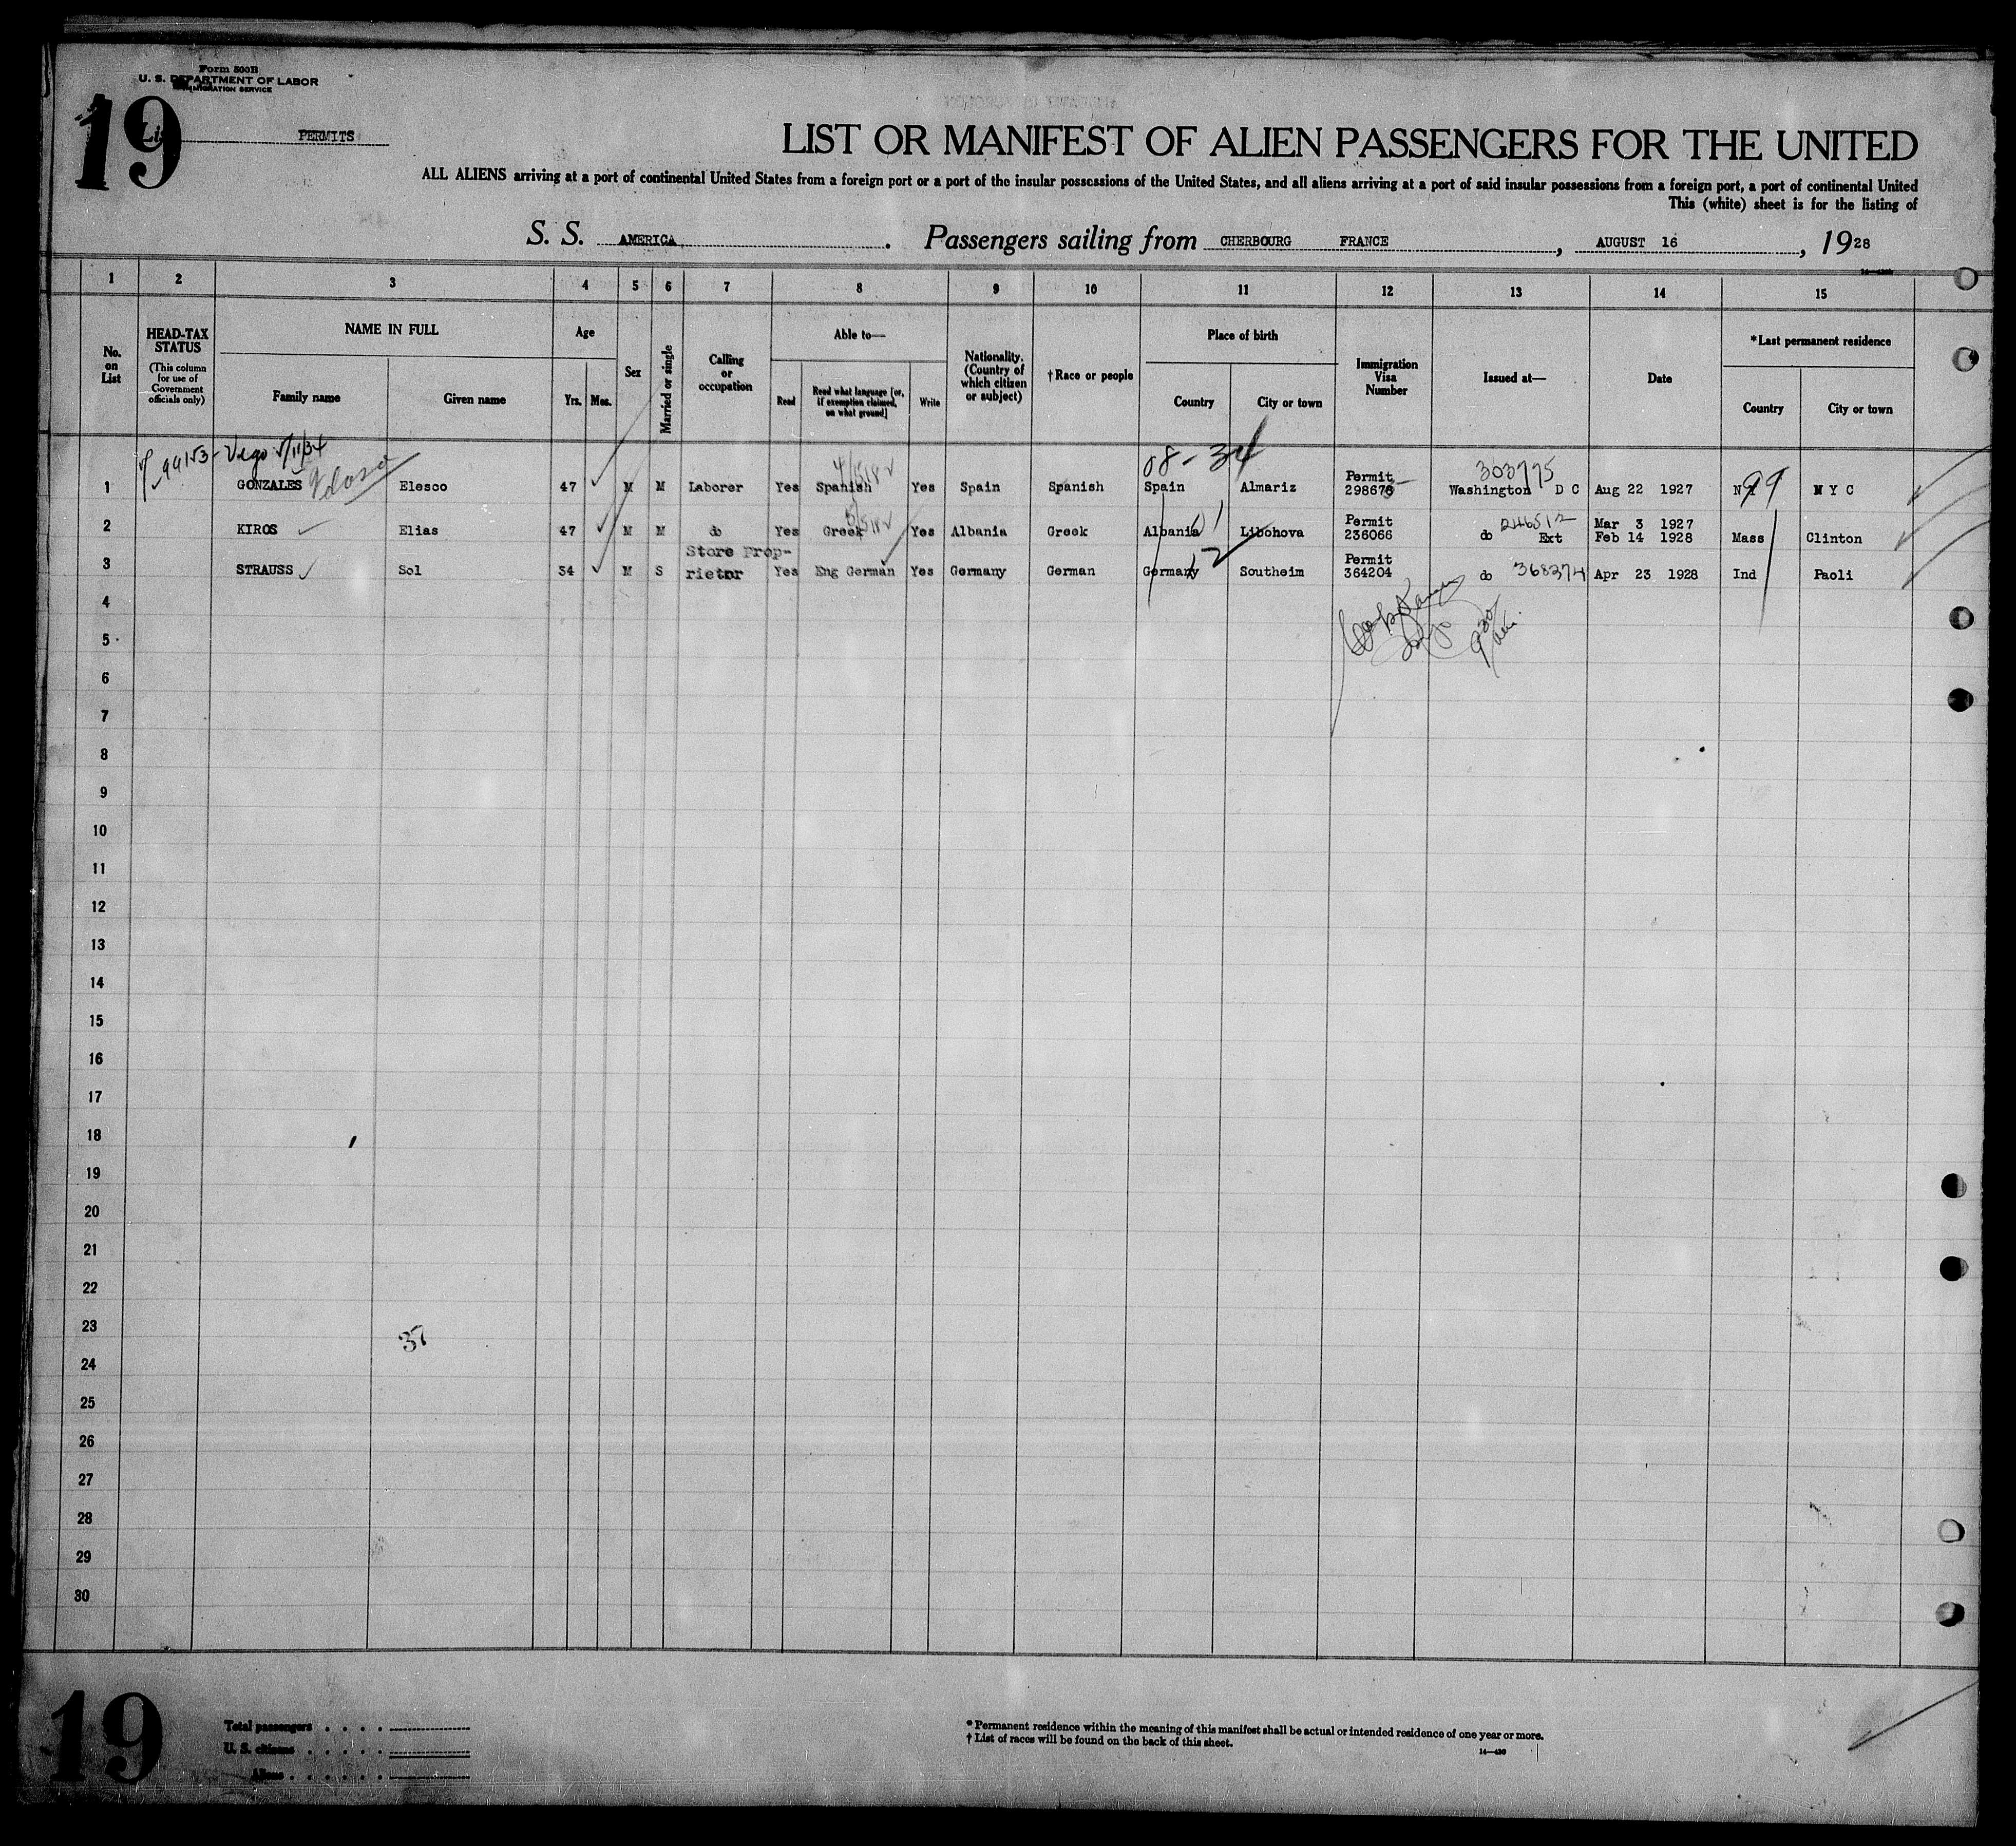 Form 500B
U. S. DEPARTMENT OF LABOR
IMMIGRATION SERVICE
19
List PERMITS
LIST OR MANIFEST OF ALIEN PASSENGERS FOR THE UNITED
ALL ALIENS arriving at a port of continental United States from a foreign port or a port of the insular possessions of the United States, and all aliens arriving at a port of said insular possessions from a foreign port, a port of continental United
This (white) sheet is for the listing of
S. S. AMERICA. Passengers sailing from CHERBOURG FRANCE, AUGUST 16, 1928
1 2 3 4 5 6 7 8 9 10 11 12 13 14 15
No. on List
HEAD-TAX STATUS
(This column for use of Government officials only)
NAME IN FULL
Family name
Given name
Age
Yrs.
Mos.
Sex
Married or single
Calling or occupation
Able to—
Read
Read what language [or, if exemption claimed, on what ground]
Write
Nationality. (Country of which citizen or subject)
†Race or people
Place of birth
Country
City or town
Immigration Visa Number
Issued at—
Date
*Last permanent residence
Country
City or town
99153 - Vigo 5/11/34
08-34
1 GONZALES Elesco 47 M M Laborer Yes Spanish Yes Spain Spanish Spain Almariz Permit 298675 303775 Washington D C Aug 22 1927 N Y 99 N Y C
2 KIROS Elias 47 M M do Yes Greek Yes Albania Greek Albania Libohova Permit 236066 do 246512 Ext Mar 3 1927 Feb 14 1928 Mass Clinton
3 STRAUSS Sol 34 M S Store Prop-rietor Yes Eng German Yes Germany German Germany Southeim Permit 364204 do 368374 Apr 23 1928 Ind Paoli
4
5
6
7
8
9
10
11
12
13
14
15
16
17
18
19
20
21
22
23
37
24
25
26
27
28
29
30
19
Total passengers
U. S. citizens
Aliens
* Permanent residence within the meaning of this manifest shall be actual or intended residence of one year or more.
† List of races will be found on the back of this sheet.
14—430